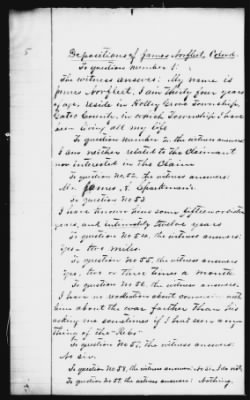 5
Depositions of James Norfleet, Colord
To question number 1:
The witness answers: My name is
James Norfleet, I am thirty four years
of age, reside in Holley Grove Township,
Gates County, in which Township I have
been living all my life
To question number 2, the witness answers
I am neither related to the Claimant
nor interested in the Claim
To question No. 52, the witness answers:
Mr. James A.
To question No 53
I have known him some fifteen or sixteen
years, and intimately twelve years
To question No 54, the witness answers:
two miles
To question No 55, the witness answers
Yes, two or three times a month
To question No 56, the witness answers:
I have no recollection about conversing with
him about the war farther than his
asking me sometimes if I had seen any
thing of the "Rebs"
To question No 57, The witness answers:
No sir.
To question No 58, the witness answers No sir, I do not
To question No 59, the witness answers: Nothing